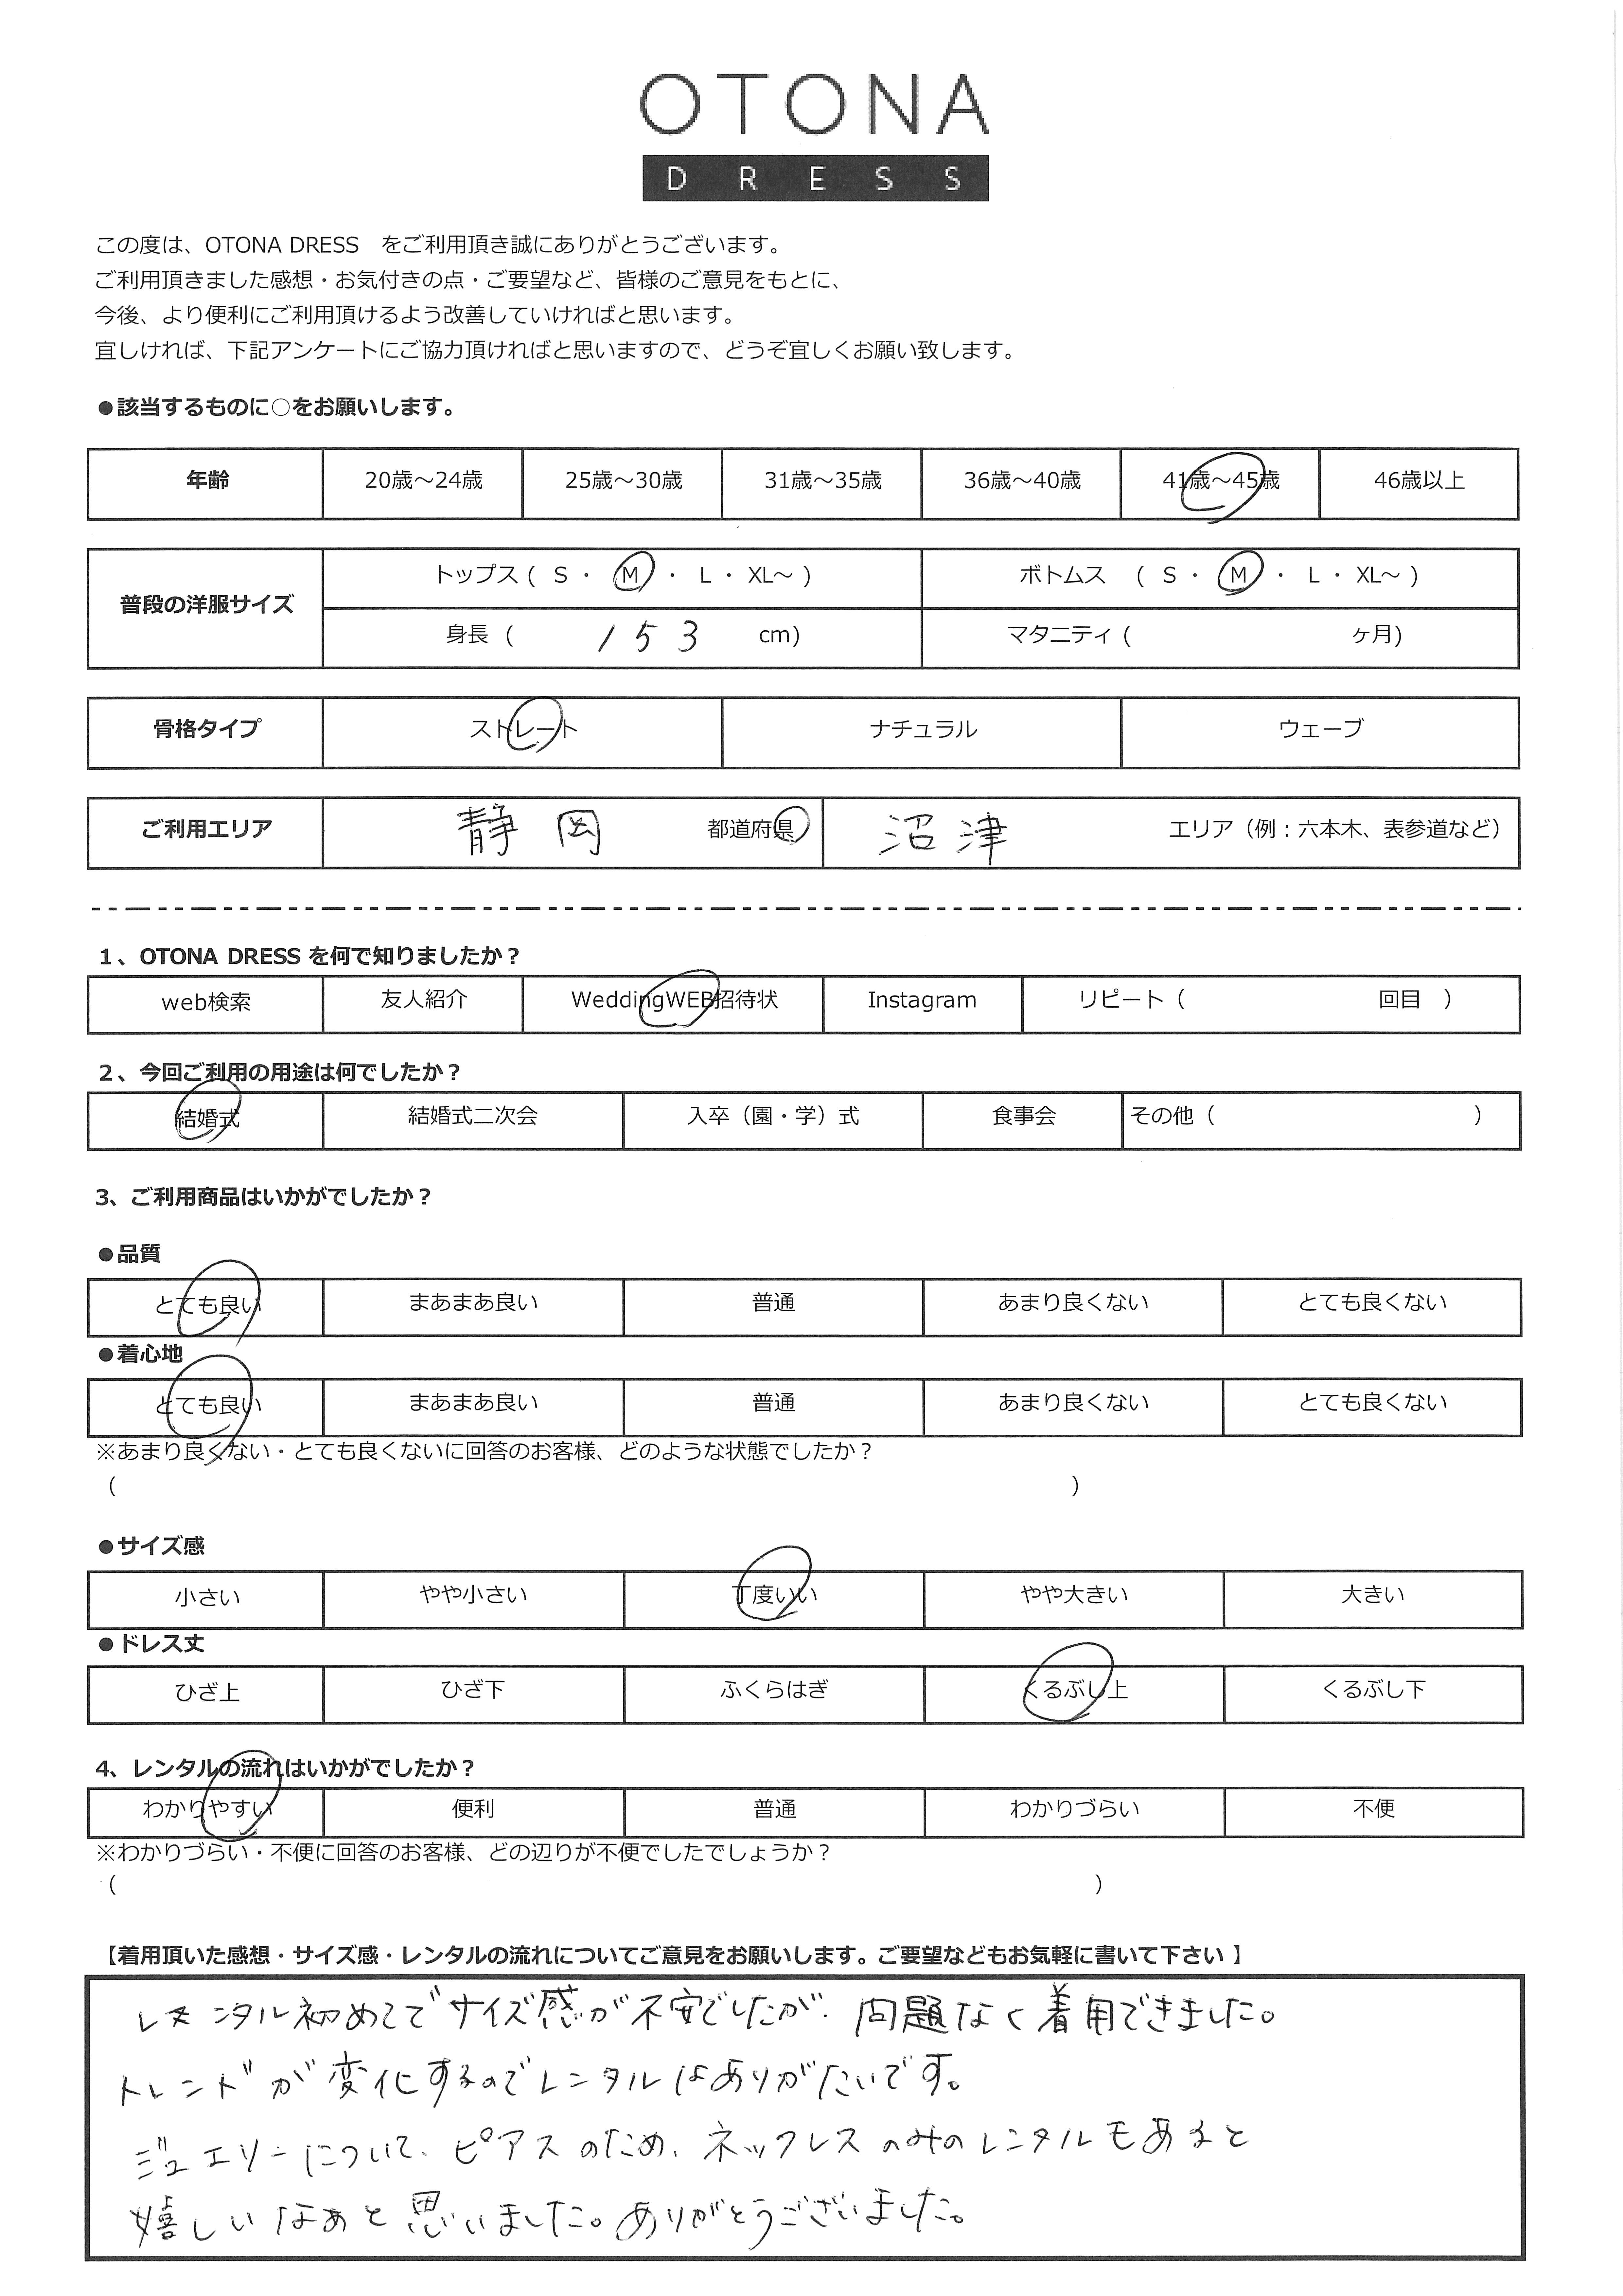 OTONA
DRESS
この度は、OTONA DRESS　をご利用頂き誠にありがとうございます。
ご利用頂きました感想・お気付きの点・ご要望など、皆様のご意見をもとに、
今後、より便利にご利用頂けるよう改善していければと思います。
宜しければ、下記アンケートにご協力頂ければと思いますので、どうぞ宜しくお願い致します。
●該当するものに○をお願いします。
年齢 20歳～24歳 25歳～30歳 31歳～35歳 36歳～40歳 41歳～45歳 46歳以上
普段の洋服サイズ トップス ( S ・ M ・ L ・ XL～ ) ボトムス ( S ・ M ・ L ・ XL～ )
身長 ( 153 cm) マタニティ ( ヶ月)
骨格タイプ ストレート ナチュラル ウェーブ
ご利用エリア 静岡 都道府県 沼津 エリア（例：六本木、表参道など）
1、OTONA DRESS を何で知りましたか？
web検索 友人紹介 WeddingWEB招待状 Instagram リピート（ 回目 ）
2、今回ご利用の用途は何でしたか？
結婚式 結婚式二次会 入卒（園・学）式 食事会 その他（ ）
3、ご利用商品はいかがでしたか？
●品質
とても良い まあまあ良い 普通 あまり良くない とても良くない
●着心地
とても良い まあまあ良い 普通 あまり良くない とても良くない
※あまり良くない・とても良くないに回答のお客様、どのような状態でしたか？
（ ）
●サイズ感
小さい やや小さい 丁度いい やや大きい 大きい
●ドレス丈
ひざ上 ひざ下 ふくらはぎ くるぶし上 くるぶし下
4、レンタルの流れはいかがでしたか？
わかりやすい 便利 普通 わかりづらい 不便
※わかりづらい・不便に回答のお客様、どの辺りが不便でしたでしょうか？
（ ）
【着用頂いた感想・サイズ感・レンタルの流れについてご意見をお願いします。ご要望などもお気軽に書いて下さい 】
レンタル初めてでサイズ感が不安でしたが、問題なく着用できました。
トレンドが変化するのでレンタルはありがたいです。
ジュエリーについて、ピアスのため、ネックレスのみのレンタルもあると
嬉しいなぁと思いました。ありがとうございました。